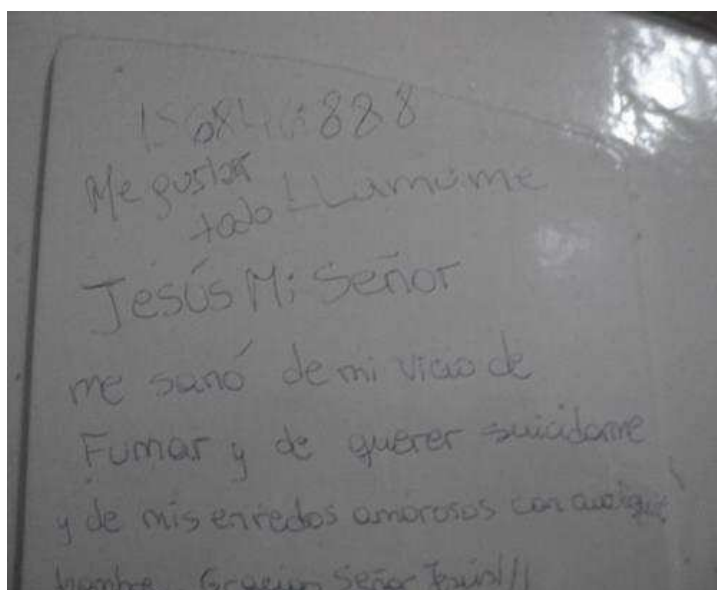 888
Me gustar
todo LLamame
Jesús Mi Señor
me sanó de mi vicio de
Fumar y de querer suicidarme
y de mis enredos amorosos con
hombre Gracias Señor Jesús!!!